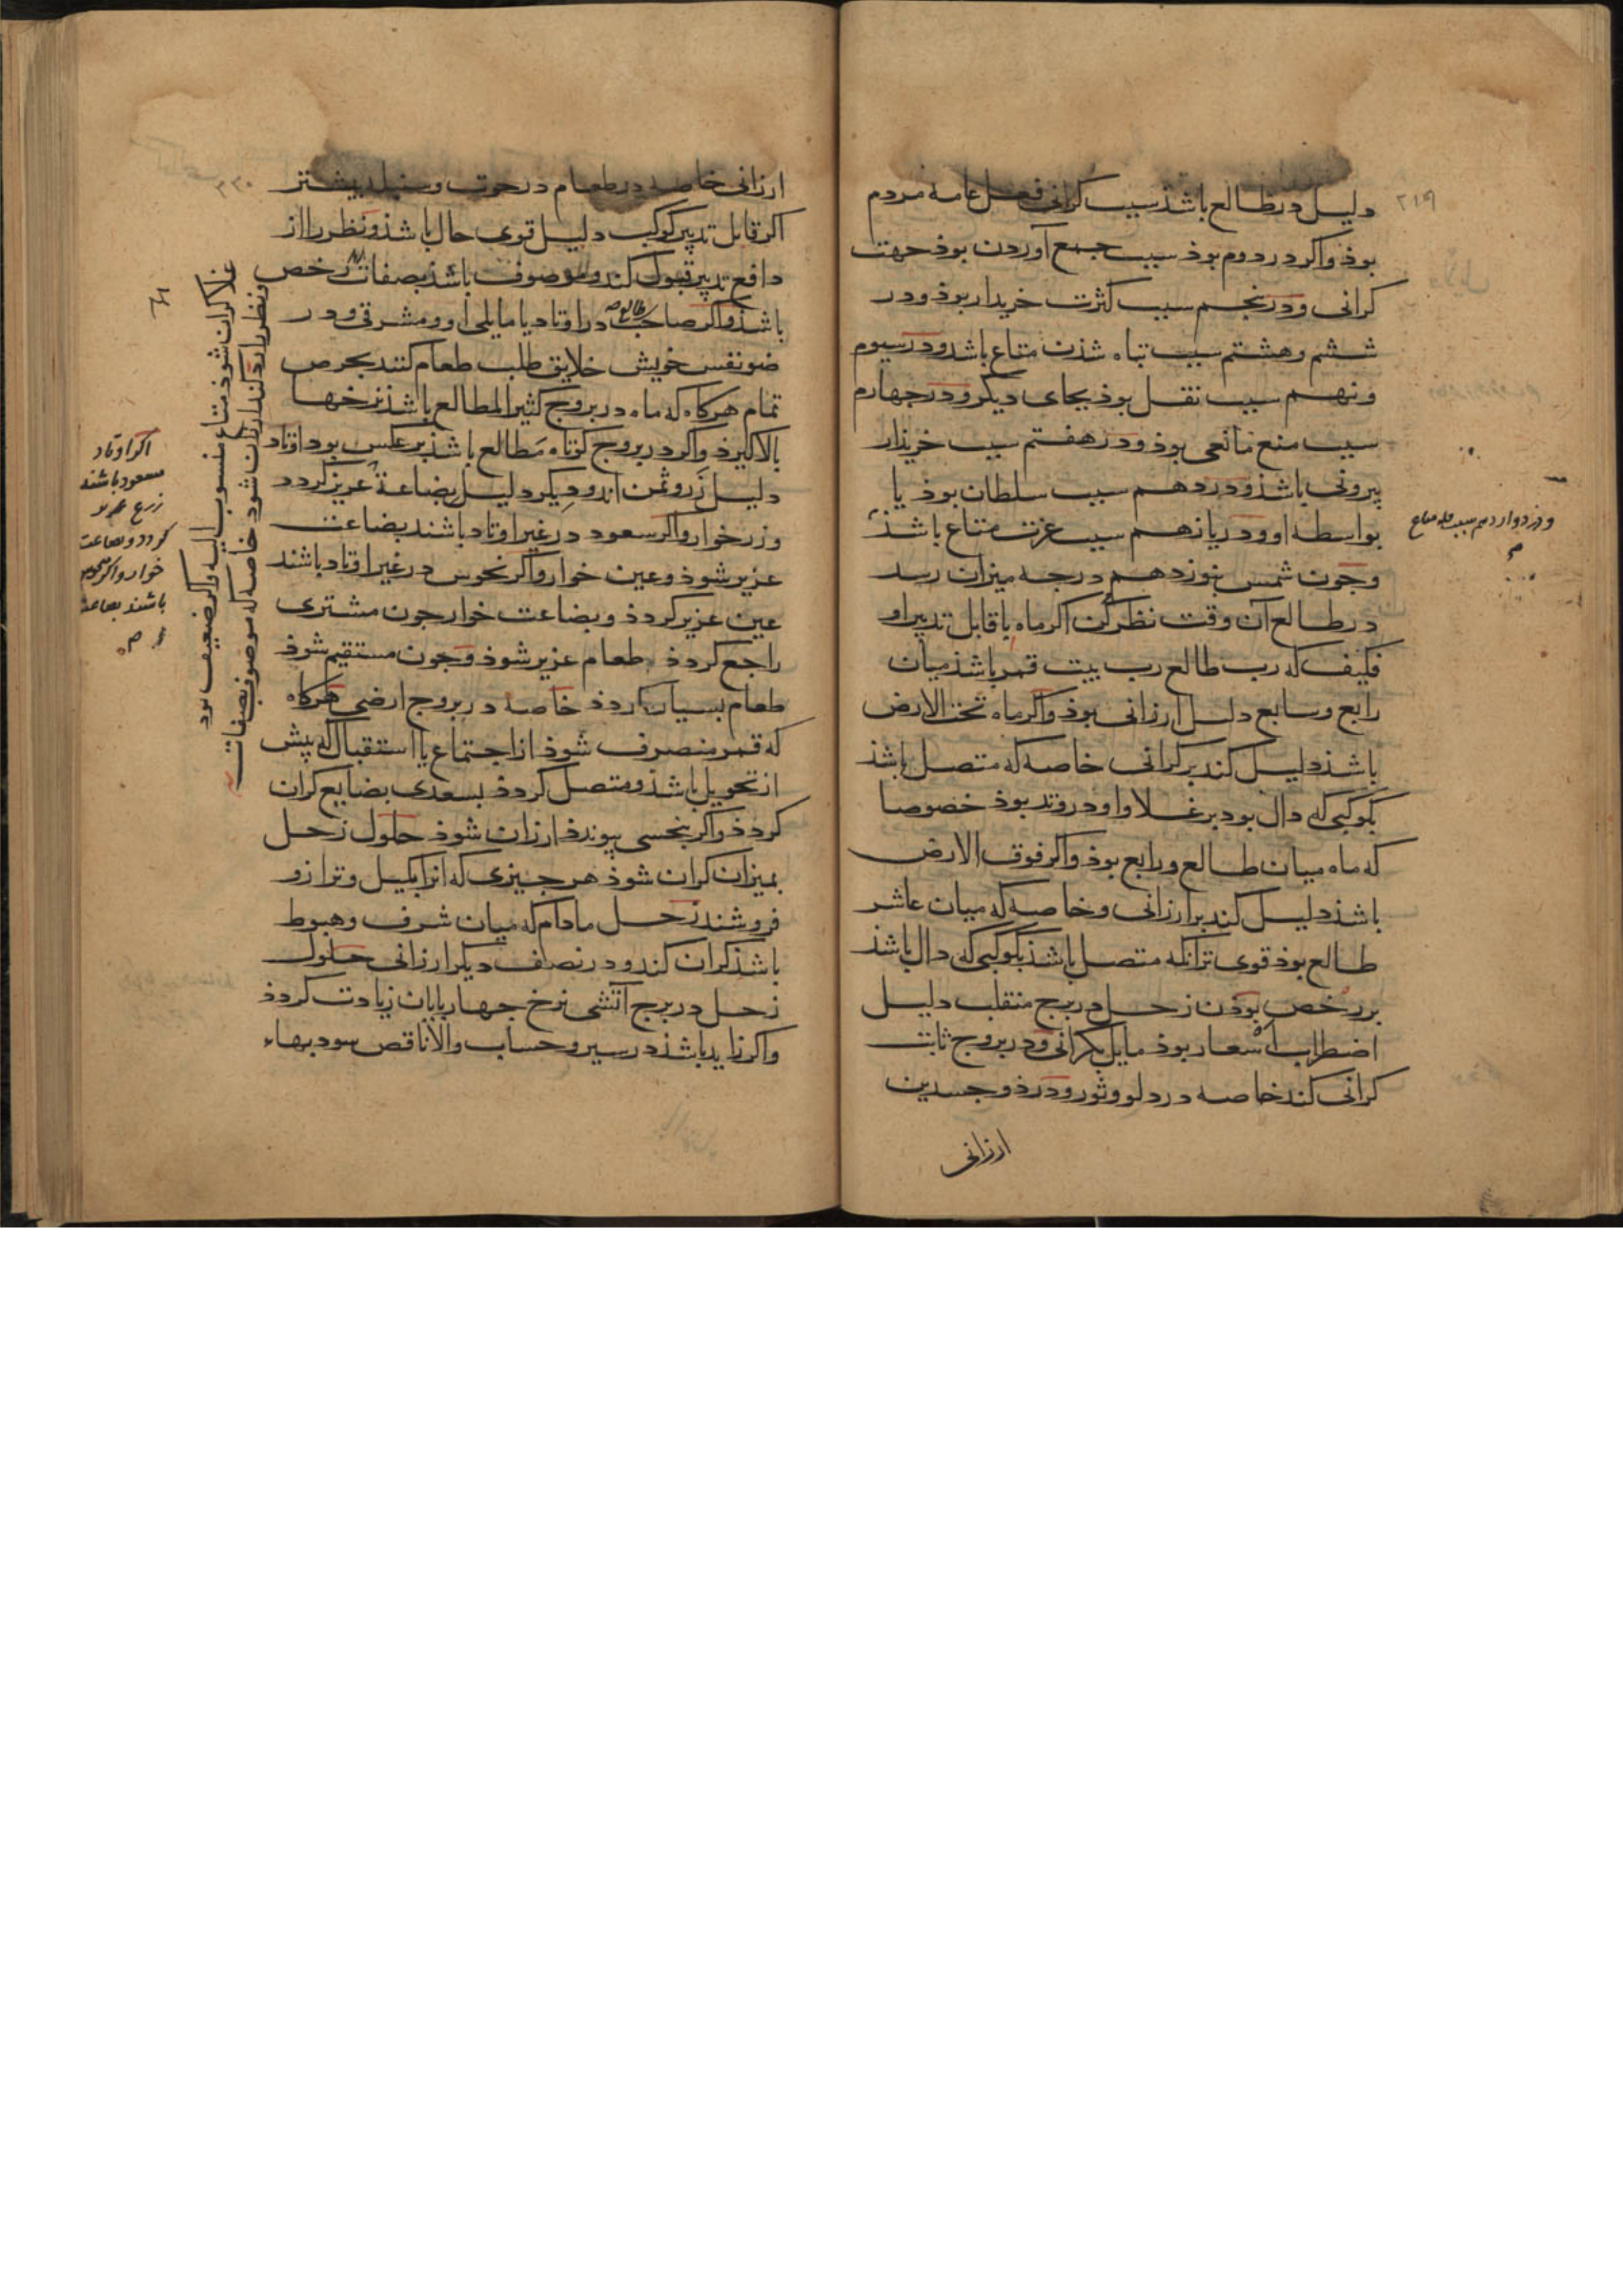 ۲۱۹
دلیل در طالع باشذ سبب کرانی فعل عامه مردم
بوذ و اکر در دوم بوذ سبب جمع آوردن بوذ جهت
کرانی و در پنجم سبب کثرت خریدار بوذ و در
ششم و هشتم سبب تباه شذن متاع باشد و در سیوم
و نهم سبب نقل بوذ بجای دیکر و در جهارم
سبب منع مانعی بوذ و در هفتم سبب خریذار
بیرونی باشذ و در دهم سبب سلطان بوذ یا
بواسطه او و در یازدهم سبب عزت متاع باشذ
و در دوازدهم سبب متاع
وجون شمس بنوزدهم درجه میزان رسد
در طالع آن وقت نظر کن اکر ماه یا قابل تدبیر او
فکیف که رب طالع رب بیت قمر باشذ میان
رابع و سابع دلیل ارزانی بوذ و اکر ماه تحت الارض
باشذ دلیل کند بر کرانی خاصه که متصل باشذ
بکوکبی که دال بود بر غلا و او در وتد بوذ خصوصا
که ماه میان طالع و رابع بوذ و اکر فوق الارض
باشذ دلیل کند بر ارزانی و خاصه که میان عاشر
طالع بوذ قوی تر انکه متصل باشذ بکوکبی که دال باشذ
بر رخص بوذن زحل در برج منقلب دلیل
اضطراب اسعار بوذ مایل بکرانی و در بروج ثابت
کرانی کند خاصه در دلو و ثور و در ذو جسدین
ارزانی
۲۲۰
ارزانی خاصه در طعام در حوت و سنبله بیشتر
اکر قابل تدبیر کوکب دلیل قوی حال باشذ و نظر را از
دافع تدبیر قبول کند و موصوف باشذ بصفات رخص
و نظر را رد کند ارزان شود خاصه که موصوف بصفات
غلا کران شوذ متاع منسوب الیه و اکر ضعیف بود
باشذ و اکر صاحب طالع در اوتاد یا مایلی او و مشرقی و در
ضو نفس خویش خلایق طلب طعام کنند بحرص
تمام هرکاه که ماه در بروج کثیر المطالع باشذ نرخها
بالا کیرذ و اکر در بروج کوتاه مطالع باشذ بر عکس بود اوتاد
دلیل زر و ثمن اند و دیکر دلیل بضاعة عزیز کردد
اکر اوتاد
مسعود باشند
زرع عزیز
کردد و بضاعت
خوار و اکر منحوس
باشند بضاعت
و زر خوار و اکر سعود در غیر اوتاد باشند بضاعت
عزیز شوذ و عین خوار و اکر نحوس در غیر اوتاد باشند
عین عزیز کردذ و بضاعت خوار جون مشتری
راجع کردذ طعام عزیز شوذ و جون مستقیم شوذ
طعام بسیار کردذ خاصه در بروج ارضی هرکاه
که قمر منصرف شوذ از اجتماع یا استقبال که پیش
از تحویل باشذ و متصل کردذ بسعدی بضایع کران
کردذ و اکر بنحسی پیوندذ ارزان شوذ حلول زحل
بمیزان کران شوذ هر جیزی که انرا بکیل و ترازو
فروشند زحل مادام که میان شرف و هبوط
باشذ کران کند و در نصف دیکر ارزانی حلول
زحل در برج آتشی نرخ جهارپایان زیادت کردذ
و اکر زاید باشذ در سیر و حساب و الا ناقص سود بهاء